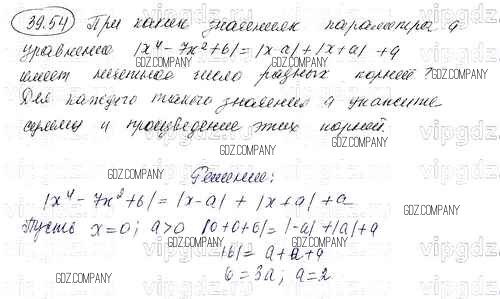 39.54 При каких значениях параметра a
уравнение |x⁴ - 7x² + 6| = |x-a| + |x+a| + a
имеет нечетное число разных корней?
Для каждого такого значения a укажите
сумму и произведение этих корней.
Решение:
|x⁴ - 7x² + 6| = |x-a| + |x+a| + a
Пусть x=0; a>0 |0+0+6| = |-a| + |a| + a
|6| = a+a+a
6 = 3a; a=2
GDZ.COMPANY
vipgdz.com